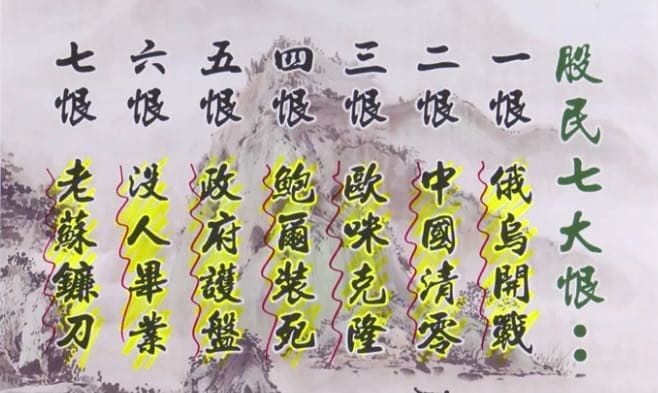 股民七大恨：
一恨 俄烏開戰
二恨 中國清零
三恨 歐咪克隆
四恨 鮑爾裝死
五恨 政府護盤
六恨 沒人畢業
七恨 老蘇鐮刀